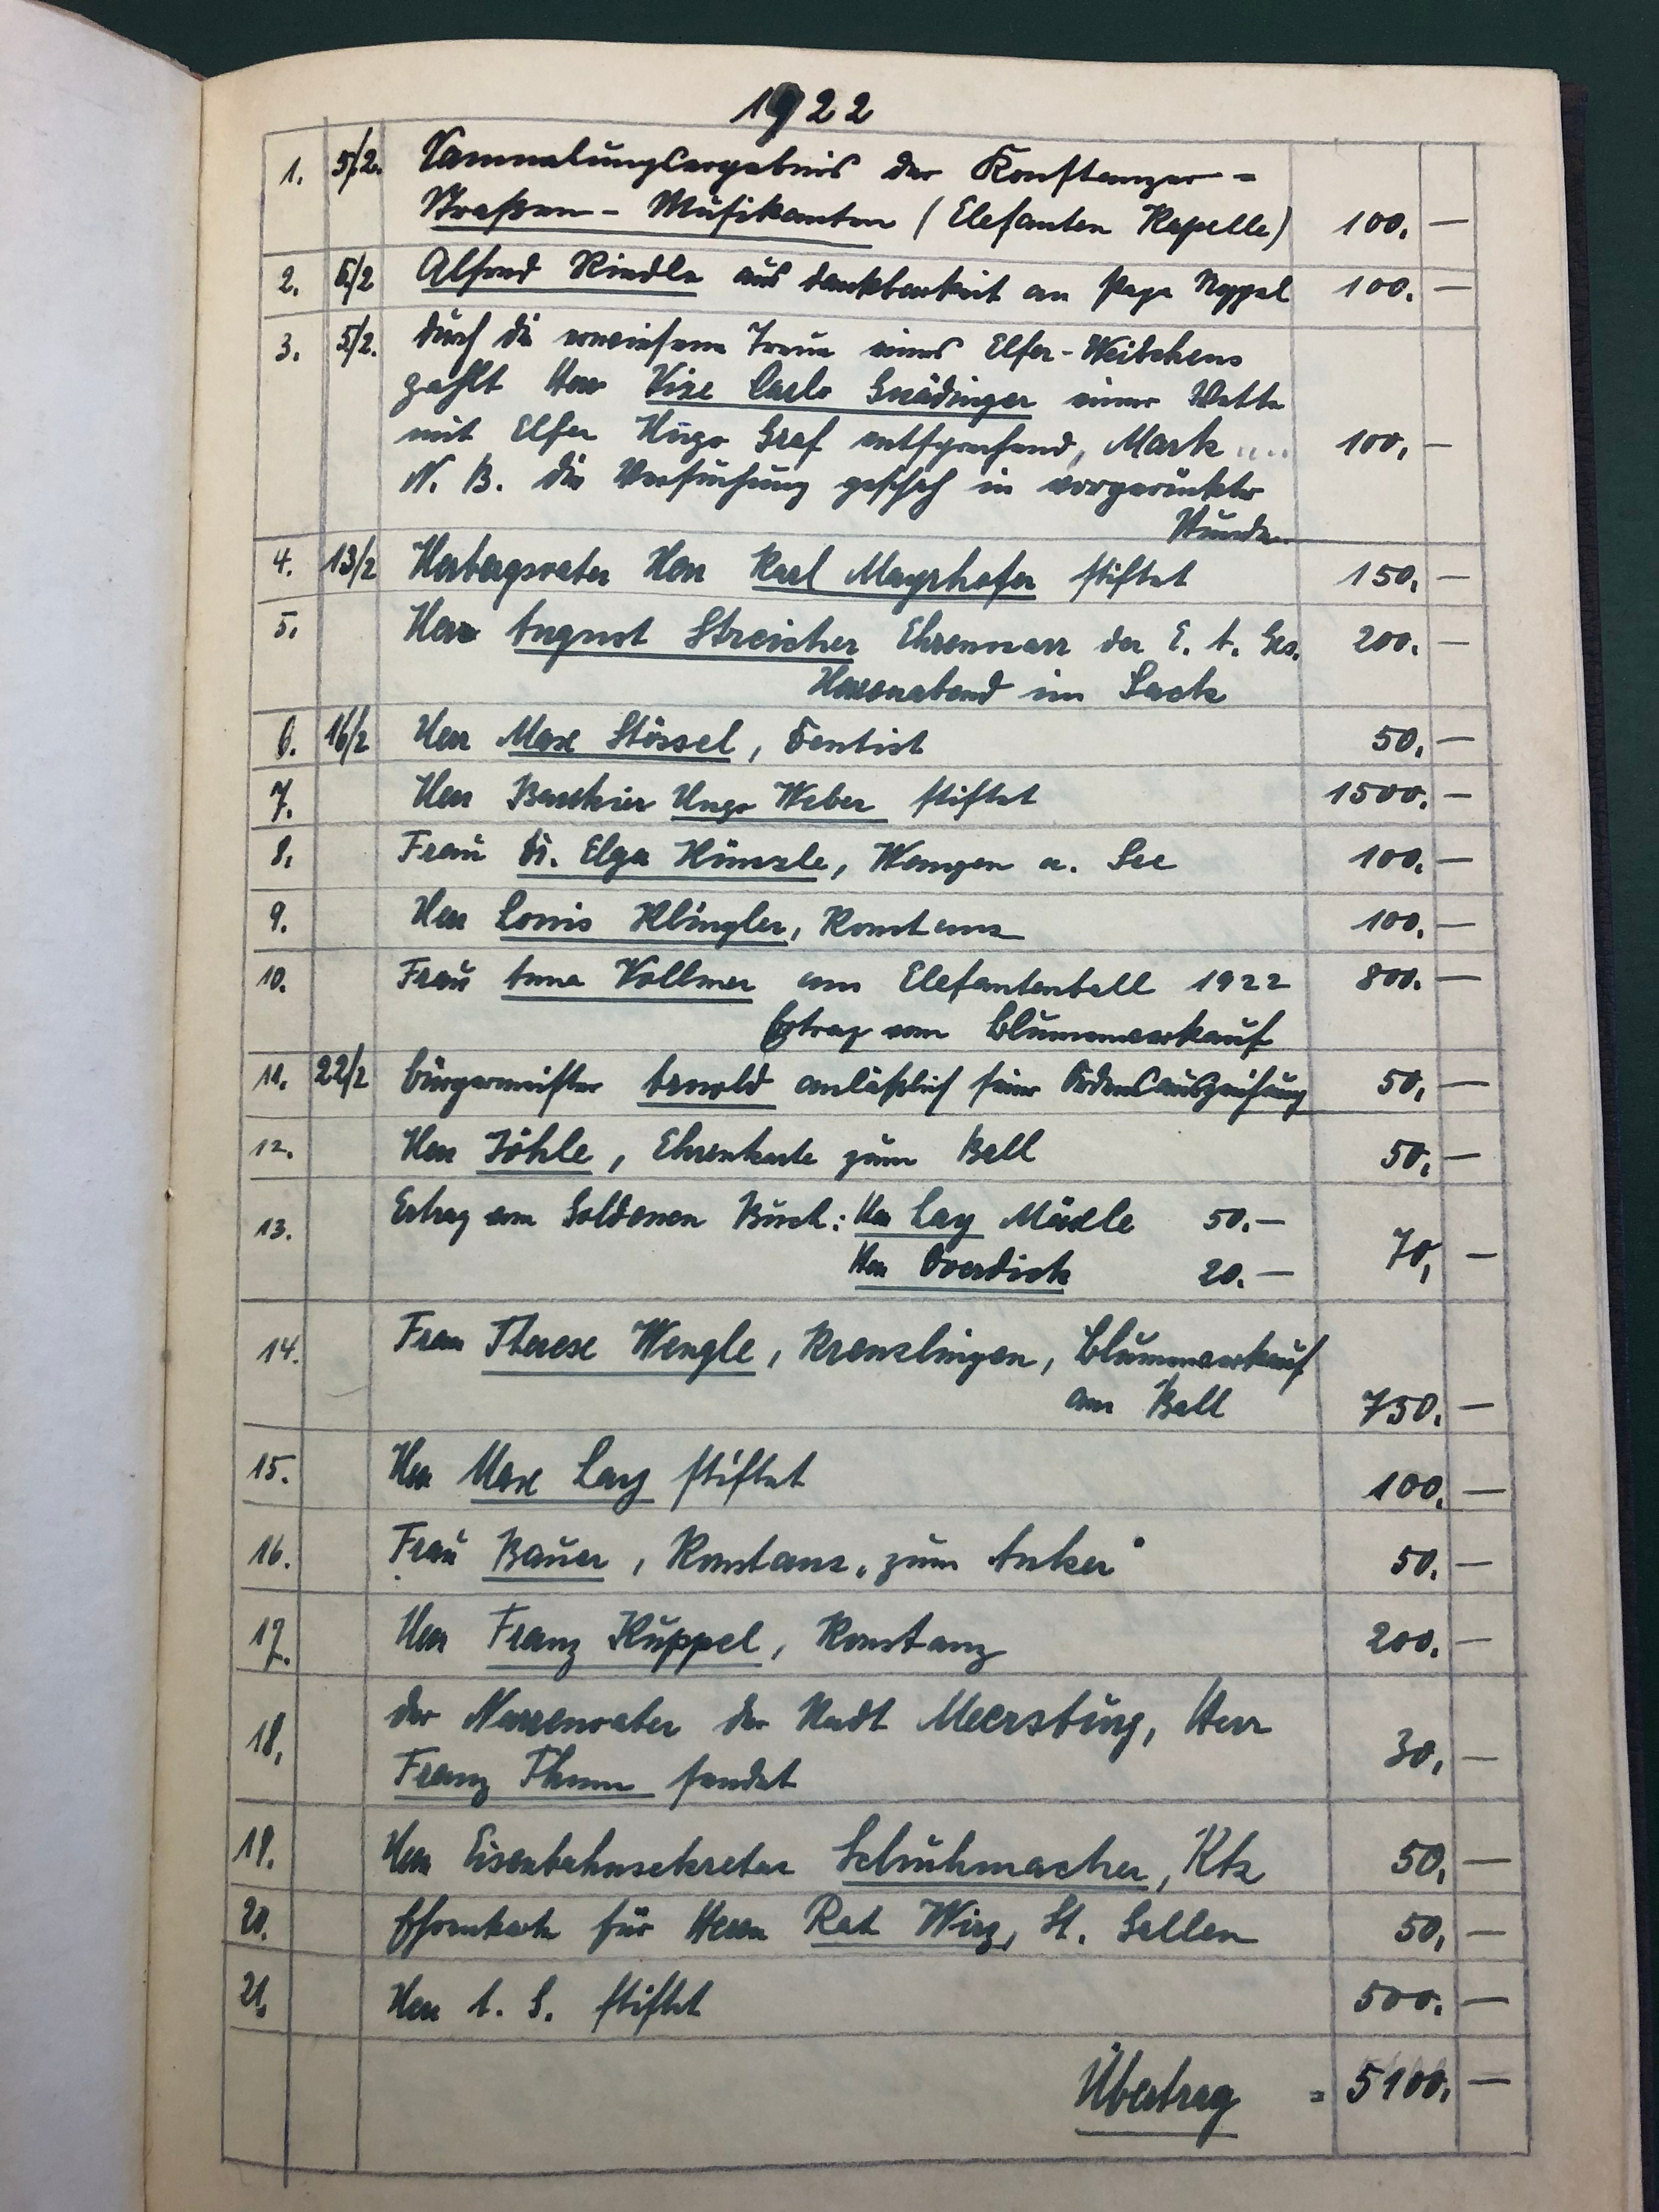 1922
1. 5/2. Sammelungsergebnis der Konstanzer-
Strassen-Musikanten (Elefanten Kapelle) 100. —
2. 6/2 Alfred Riedle aus Dankbarkeit an Papa Neppel 100. —
3. 5/2. Durch die erwiesene Treue eines Elfer-Weibchens
zahlt Herr Vize Carlo Gnädinger einer Wette
mit Elfer Hugo Graf entsprechend, Mark .... 100, —
N. B. die Versuchung geschah in vorgerückter
Stunde.
4. 13/2 Herbergsvater Herr Karl Mayrhofer stiftet 150. —
5. Herr August Streicher Ehrennarr der E. A. Ges. 200. —
Narrenabend im Sack
6. 16/2 Herr Max Stössel, Dentist 50. —
7. Herr Bankier Hugo Weber stiftet 1500. —
8. Frau Dr. Elga Künzle, Wangen a. See 100. —
9. Herr Louis Klingler, Konstanz 100. —
10. Frau Anna Vollmer am Elefantenball 1922 800. —
Ertrag vom Blumenverkauf
11. 22/2 Bürgermeister Arnold anläßlich seiner Ordensauszeichnung 50, —
12. Herr Jöhle, Ehrenkarte zum Ball 50, —
13. Ertrag vom Goldenen Buch: Herr Lay Märle 50.—
Herr Overdick 20.— 70, —
14. Frau Therese Wengle, Kreuzlingen, Blumenverkauf
am Ball 750. —
15. Herr Max Lay stiftet 100, —
16. Frau Bauer, Konstanz „zum Anker" 50, —
17. Herr Franz Kuppel, Konstanz 200. —
18. der Narrenvater der Stadt Meersburg, Herr
Franz Thum sendet 30, —
19. Herr Eisenbahnsekretär Schuhmacher, Ktz 50, —
20. Ehrenkarte für Herrn Rat Wirz, St. Gallen 50, —
21. Herr A. S. stiftet 500. —
Übertrag = 5100. —